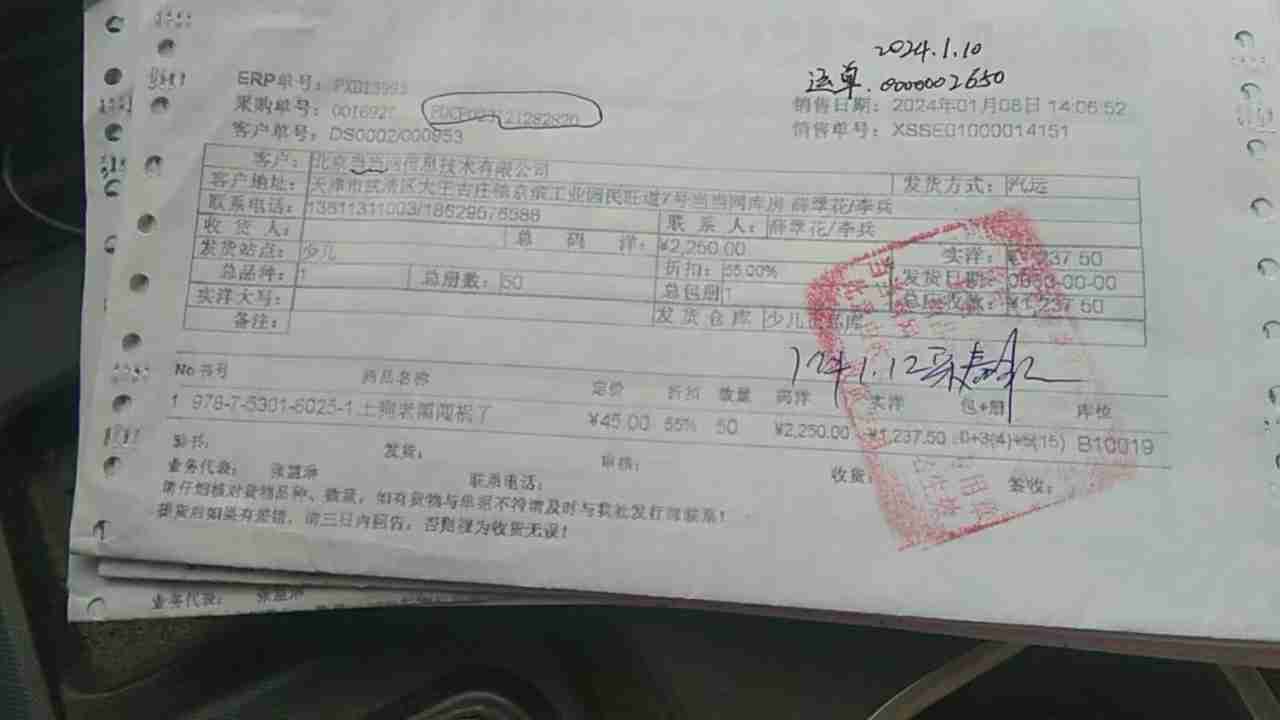 2024.1.10
运单.0000002650
ERP单号:
采购单号: 0016927
销售日期: 2024年01月08日 14:06:52
客户单号: DS0002/000953
销售单号: XSSE01000014151
客户: 北京当当网信息技术有限公司 发货方式: 汽运
客户地址: 天津市武清区大王古庄镇京滨工业园民旺道7号当当网库房 薛季花/李兵
联系电话: 联系人: 薛季花/李兵
收货人: 总码洋: ¥2,250.00 实洋: ¥1,237.50
发货站点: 少儿 折扣: 55.00% 发货日期:
总品种: 1 总册数: 50 总包册 1 ¥1,237.50
实洋大写: 发货仓库 少儿
备注:
No 书号 商品名称 定价 折扣 数量 码洋 实洋 包+册 库位
1 978-7-5301-6025-1 土狗老黑闯祸了 ¥45.00 55% 50 ¥2,250.00 ¥1,237.50 0+3(4)+5(15) B10019
验书: 发货: 审核: 收货: 签收:
业务代表: 张慧琳 联系电话:
请仔细核对货物品种、数量,如有货物与单据不符请及时与我社发行部联系!
提货后如果有差错,请三日内回告,否则视为收货无误!
业务代表: 张慧琳